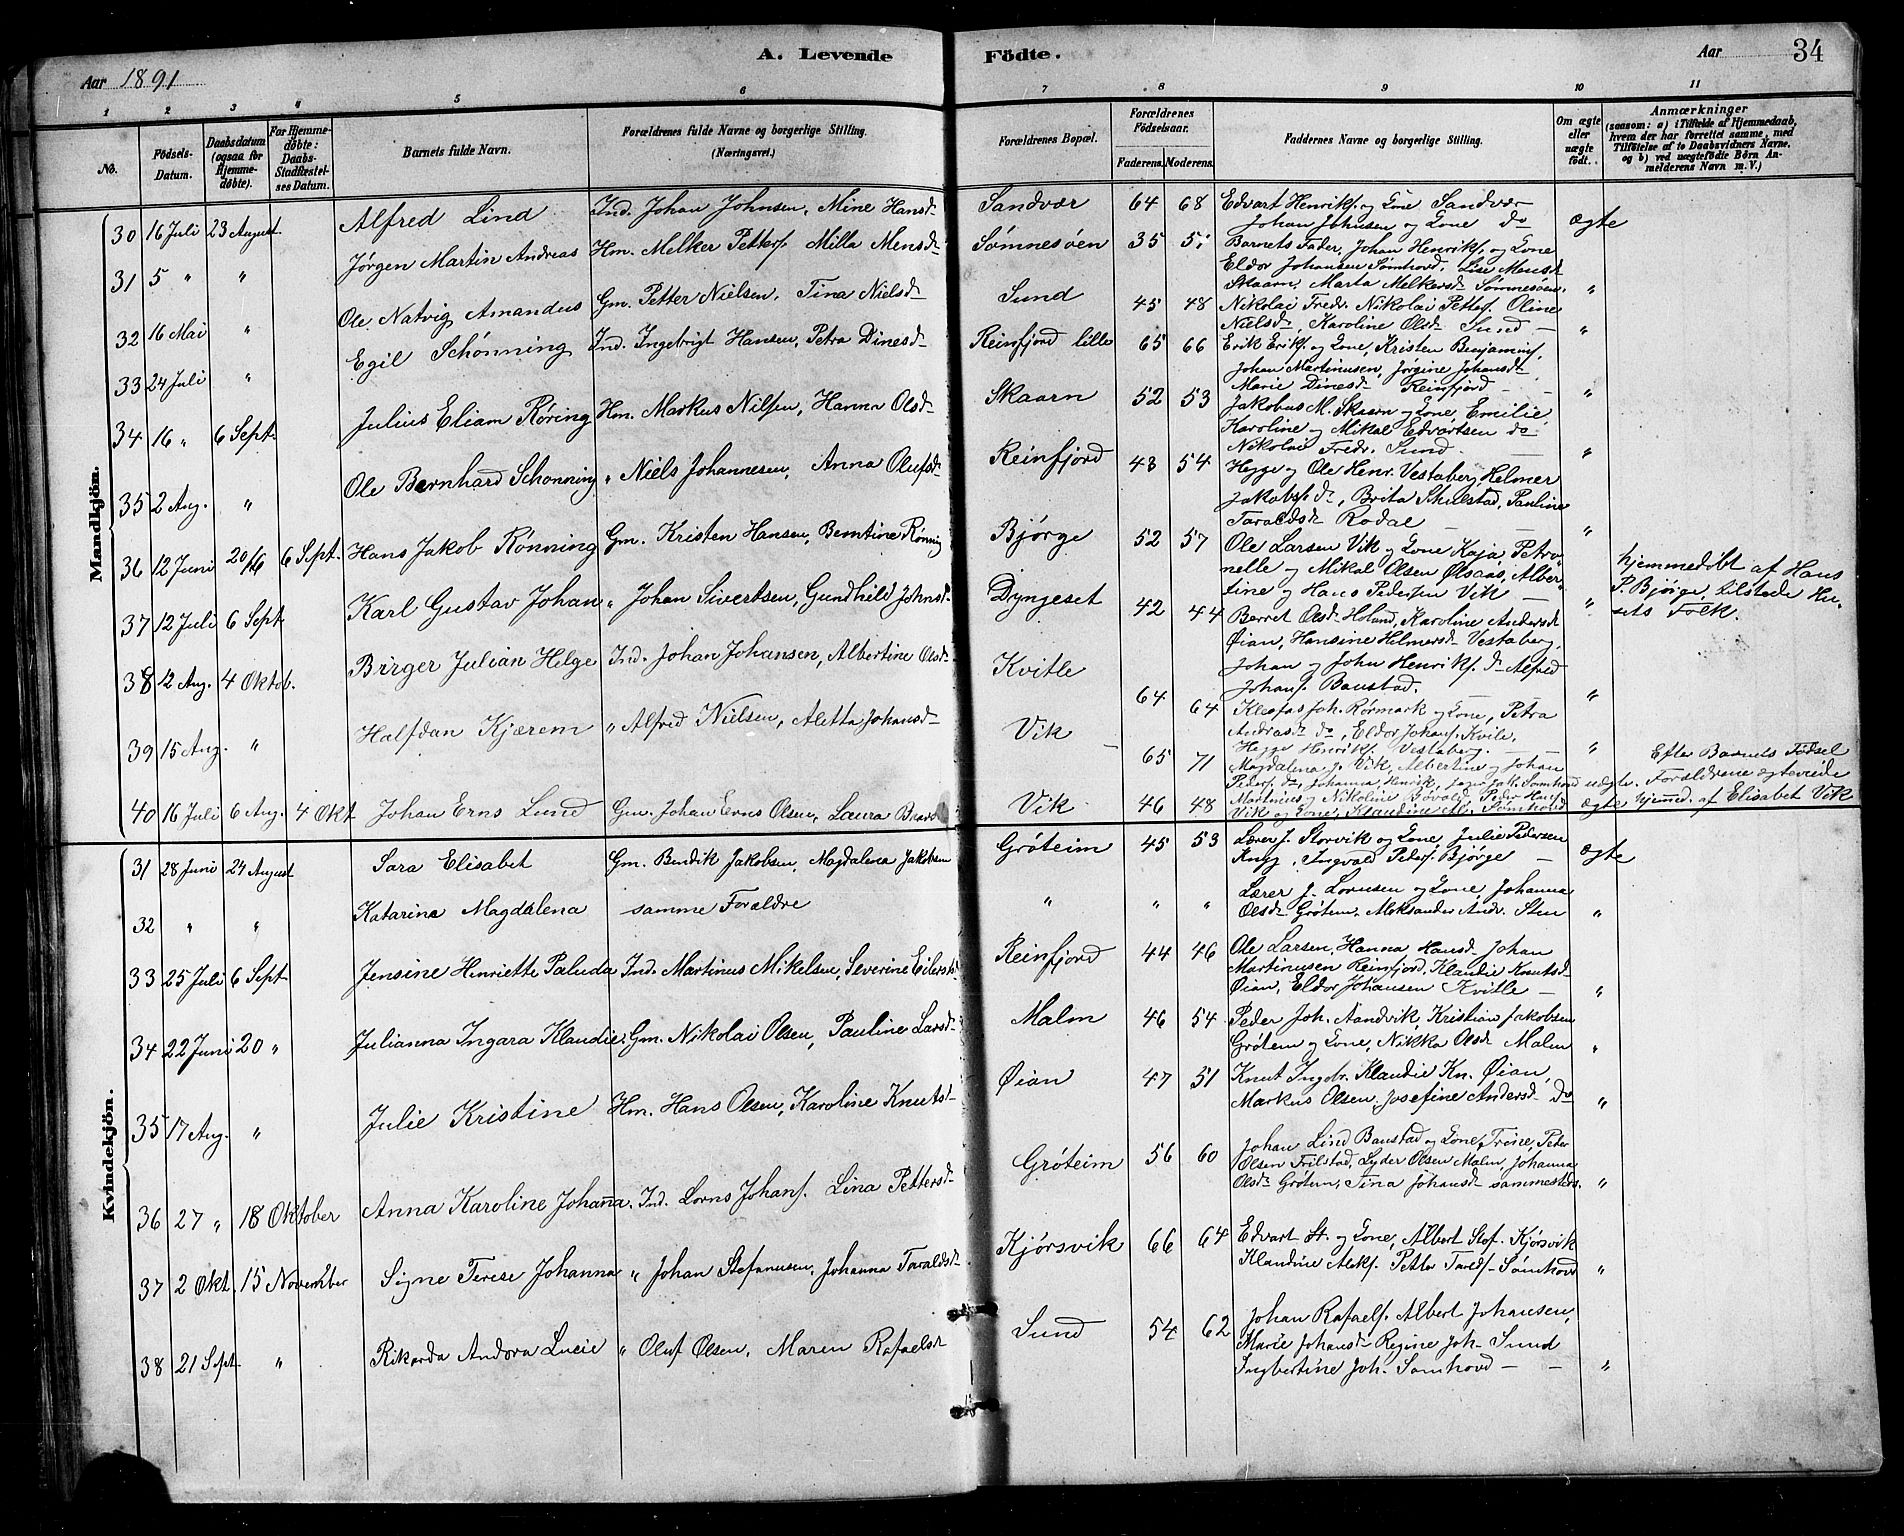 A. Levende Födte.
Aar 1891
Aar 34
1 2 3 4 5 6 7 8 9 10 11
No.
Födsels-Datum.
Daabsdatum (ogsaa for Hjemmedøbte).
For Hjemmedøbte: Daabs-Stadfæstelses Datum.
Barnets fulde Navn.
Forældrenes fulde Navne og borgerlige Stilling. (Næringsvei.)
Forældrenes Bopæl.
Forældrenes Födselsaar.
Faderens. Moderens.
Faddernes Navne og borgerlige Stilling.
Om ægte eller uægte født.
Anmærkninger (saasom: a) i Tilfælde af Hjemmedaab, hvem der har forrettet samme, med Tilføielse af to Daabsvidners Navne, og b) ved uægtefødte Børn Anmelderens Navn m. V.)
Mandkjön.
30 16 Juli 23 August. Alfred Lind Ind. Johan Johnsen, Mine Hansd Sandvær 64 68 Edvart Henriks. og Kone Sandvær
Johan Johnsen og Kone do ægte
31 5 " " Jørgen Martin Andreas Hm. Melker Petters. Milla Mensd Sømnesøen 35 Barnets Fader, Johan Henriks. og Kone
Eldor Johansen Sømhovd, Lise Mensd
Skaarn, Marta Melkersd Sømnesøen. "
32 16 Mai " Ole Natvig Amandus Gm. Petter Nielsen, Tina Nielsd Sund 45 48 Nikolai Fredr. Nikolai Petters. Oline
Nielsd, Karoline Olsd Sund — "
33 24 Juli " Egil Schønning Ind. Ingebrigt Hansen, Petra Dinesd Reinfjord lille 65 66 Erik Eriks. og Kone, Kristen Benjamins.
Johan Martinusen, Jørgine Johansd
Marie Dinesd Reinfjord — "
34 16 " 6 Sept. Julius Eliam Røring Hm. Markus Nilsen, Hanna Olsd Skaarn 52 53 Jakobus M. Skaarn og Kone, Emilie
Karoline og Mikal Edvartsen do
Nikolai Fredr. Sund. "
35 2 Aug. " Ole Bernhard Schønning " Niels Johannesen, Anna Olufsd Reinfjord 48 54 Hegge og Ole Henr. Vestaberg, Helmer
Jakobs. do, Brita Skulstad, Pauline
Taraldsd Rodal — "
36 12 Juni 20/6 6 Sept. Hans Jakob Rønning Gm. Kristen Hansen, Berntine Rønning Bjørge 52 57 Ole Larsen Vik og Kone Kaja Petro
nelle og Mikal Olsen Ølsaas, Alber
tine og Hans Pedersen Vik — "
hjemmedøbt af Hans
P. Bjørge, tilstede Hu-
sets Folk.
37 12 Juli 6 Sept Karl Gustav Johan " Johan Sivertsen, Gundhild Johnsd Dyngeset 42 44 Berret Olsd Holand, Karoline Andersd
Øian, Hansine Helmersd Vestaberg,
38 12 Aug. 4 Oktob. Birger Julian Helge Ind. Johan Johansen, Albertine Olsd Kvitle 64 64 Johan og John Henriks. do Alfred
Johans. Baustad. "
Klesfas Joh. Rørmark og Kone, Petra
Andrasd do, Eldor Johans. Kvile,
39 15 Aug. " Halfdan Kjærem " Alfred Nielsen, Aletta Johansd Vik 65 71 Hegge Henriks. Vestaberg. — "
Magdalena J. Vik, Albertine og Johan
Peders. do, Johanna Henrik, Sømhovd uægte.
Efter Barnets Fødsel
Forældrene ægteviede
40 16 Juli 6 Aug. 4 Okt Johan Erns Lund Gm. Johan Erns Olsen, Laura Vik 46 48 Martinus og Nikoline Bøvald, Peder Hans.
Vik og Kone, Klandine Sømhovd ægte hjemmd. af Elisabet Vik
Kvindekjön.
31 28 Juni 24 August Sara Elisabet Gm. Bendik Jakobsen, Magdalena Jakobsen Grøteim 45 53 Lærer J. Storvik og Kone, Julie Pedersen
Ingvald Peders. Bjørge — ægte
32 " " Katarina Magdalena samme Forældre " " " Lærer J. Lornsen og Kone Johanna
Olsd Grøtem, Aleksander Andr. Sten "
33 25 Juli 6 Sept Jensine Henriette Paluda Ind. Martinus Mikelsen, Severine Eilertsd Reinfjord 44 46 Ole Larsen, Hanna Hansd Johan
Martinusen Reinfjord, Klandie Knutsd
Øian, Eldor Johansen Kvitle — "
34 22 Juni 20 " Julianna Ingara Klandie. Gm. Nikolai Olsen, Pauline Larsd Malm 46 54 Peder Joh. Aandvik, Kristian Jakobsen
Grøtem og Kone, Nikka Olsd Malm "
35 17 Aug. " Julie Kristine Hm. Hans Olsen, Karoline Knutsd Øian 47 51 Knut Ingbr. Klandie Kn. Øian,
Markus Olsen, Josefine Andersd do "
36 27 " 18 Oktober Anna Karoline Johanna. Ind. Lorns Johans. Lina Pettersd Grøteim 56 60 Johan Lind Baustad og Kone, Trine Peder
Olsen Frilstad, Lyder Olsen Malm, Johanna
Olsd Grøtem, Tina Johansd sammesteds. "
37 2 Okt. 15 November Signe Terese Johanna " Johan Stefanusen, Johanna Taraldsd Kjørsvik 66 64 Edvart St. og Kone, Albert Stof. Kjørsvik
Klandine Aleks. Petter Sømhovd "
38 21 Sept. " Rikarda Andora Lucie " Oluf Olsen, Maren Rafaelsd Sund 54 62 Johan Rafaels. Albert Johansen,
Marie Johansd Regine Joh. Sund
Ingbertine Joh. Sømhovd — — "